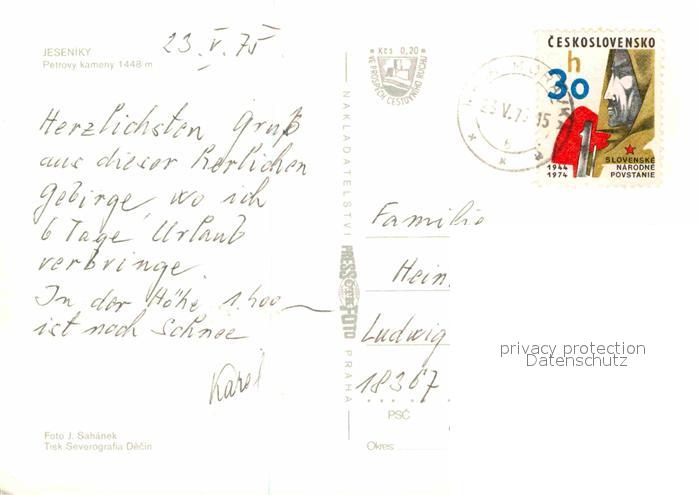 JESENÍKY
Petrovy kameny 1448 m
23.V.75
Herzlichsten Gruß
aus dieser herlichen
Gebirge, wo ich
6 Tage Urlaub
verbringe.
In der Höhe 1400
ist noch Schnee
Karel
Foto J. Sahánek
Tisk Severografia Děčín
NAKLADATELSTVÍ
PRESSFOTO
PRAHA
* Kčs 0,20 *
VE PROSPĚCH CESTOVNÍHO RUCHU
ČESKOSLOVENSKO
h
30
1944
1974
SLOVENSKÉ
NÁRODNÉ
POVSTANIE
Familie
Hein
Ludwig
18367
PSČ
Okres
privacy protection
Datenschutz